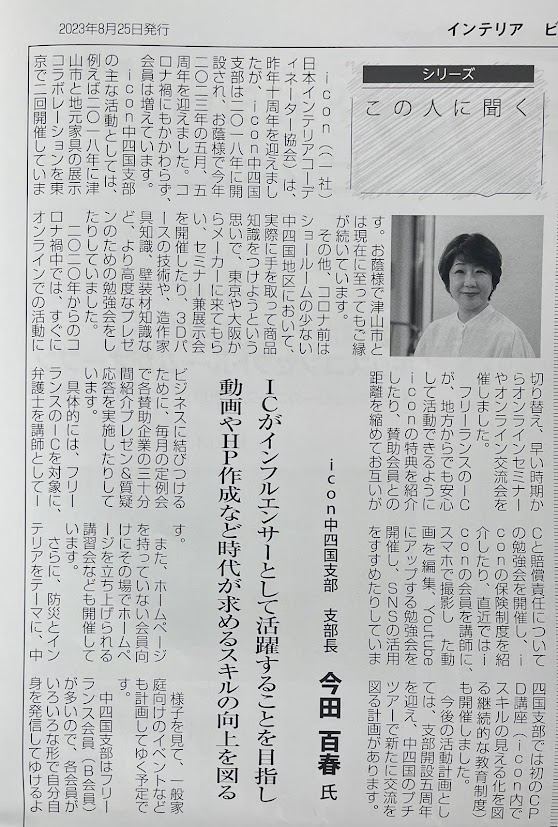 2023年8月25日発行
インテリア ビ
シリーズ
この人に聞く
icon((一社)
日本インテリアコーデ
ィネーター協会)は、
昨年十周年を迎えまし
たが、icon中四国
支部は二〇一八年に開
設され、お蔭様で今年
二〇二三年の五月、五
周年を迎えました。コ
ロナ禍にもかかわらず、
会員は増えています。
icon中四国支部
の主な活動としては、
例えば二〇一八年に津
山市と地元家具の展示
コラボレーションを東
京で二回開催していま
す。お蔭様で津山市と
は現在に至ってもご縁
が続いています。
その他、コロナ前は
ショールームの少ない
中四国地区において、
実際に手を取って商品
知識をつけようという
思いで、東京や大阪か
らメーカーに来てもら
い、セミナー兼展示会
を開催したり、3Dパ
ースの技術や、造作家
具知識、壁装材知識な
ど、より高度なプレゼ
ンのための勉強会をし
たりしていました。
二〇二〇年からのコ
ロナ禍中では、すぐに
オンラインでの活動に
切り替え、早い時期か
らオンラインセミナー
やオンライン交流会を
催しました。
フリーランスのIC
が、地方からでも安心
して活動できるように
iconの特典を紹介
したり、賛助会員との
距離を縮めてお互いが
icon中四国支部 支部長 今田 百春 氏
ICがインフルエンサーとして活躍することを目指し
動画やHP作成など時代が求めるスキルの向上を図る
ビジネスに結びつける
ために、毎月の定例会
で各賛助企業の三十分
間紹介プレゼン&質疑
応答を実施したりして
います。
具体的には、フリー
ランスのICを対象に、
弁護士を講師としてI
Cと賠償責任について
の勉強会を開催し、i
conの保険制度を紹
介したり、直近ではi
conの会員を講師に、
スマホで撮影した動
画を編集、Youtube
にアップする勉強会を
開催し、SNSの活用
をすすめたりしていま
す。
また、ホームページ
を持っていない会員向
けにその場でホームペ
ージを立ち上げられる
講習会なども開催して
います。
さらに、防災とイン
テリアをテーマに、中
四国支部では初のCP
D講座(icon内で
スキルの見える化を図
る継続的な教育制度)
も開催しました。
今後の活動計画とし
ては、支部開設五周年
を迎え、中四国のプチ
ツアーで新たに交流を
図る計画があります。
様子を見て、一般家
庭向けのイベントなど
も計画してゆく予定で
す。
中四国支部はフリー
ランス会員(B会員)
が多いので、各会員が
いろいろな形で自分自
身を発信してゆけるよ